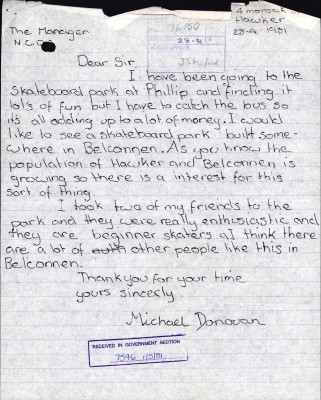 4 morosch
Hawker
28-4-1981
The Manager
N.C.D.C
76/50
28-4
Dear Sir,
I have been going to the
skateboard park at Phillip and finding it
lots of fun but I have to catch the bus so
it's all adding up to a lot of money. I would
like to see a skateboard park built some-
where in Belconnen. As you know the
population of Hawker and Belconnen is
growing so there is a interest for this
sort of thing.
I took two of my friends to the
park and they were really enthusiastic and
they are beginner skaters & I think there
are a lot of other people like this in
Belconnen.
Thankyou for your time
yours sincerly
Michael Donovan
RECEIVED IN GOVERNMENT SECTION
7546 1/5/81